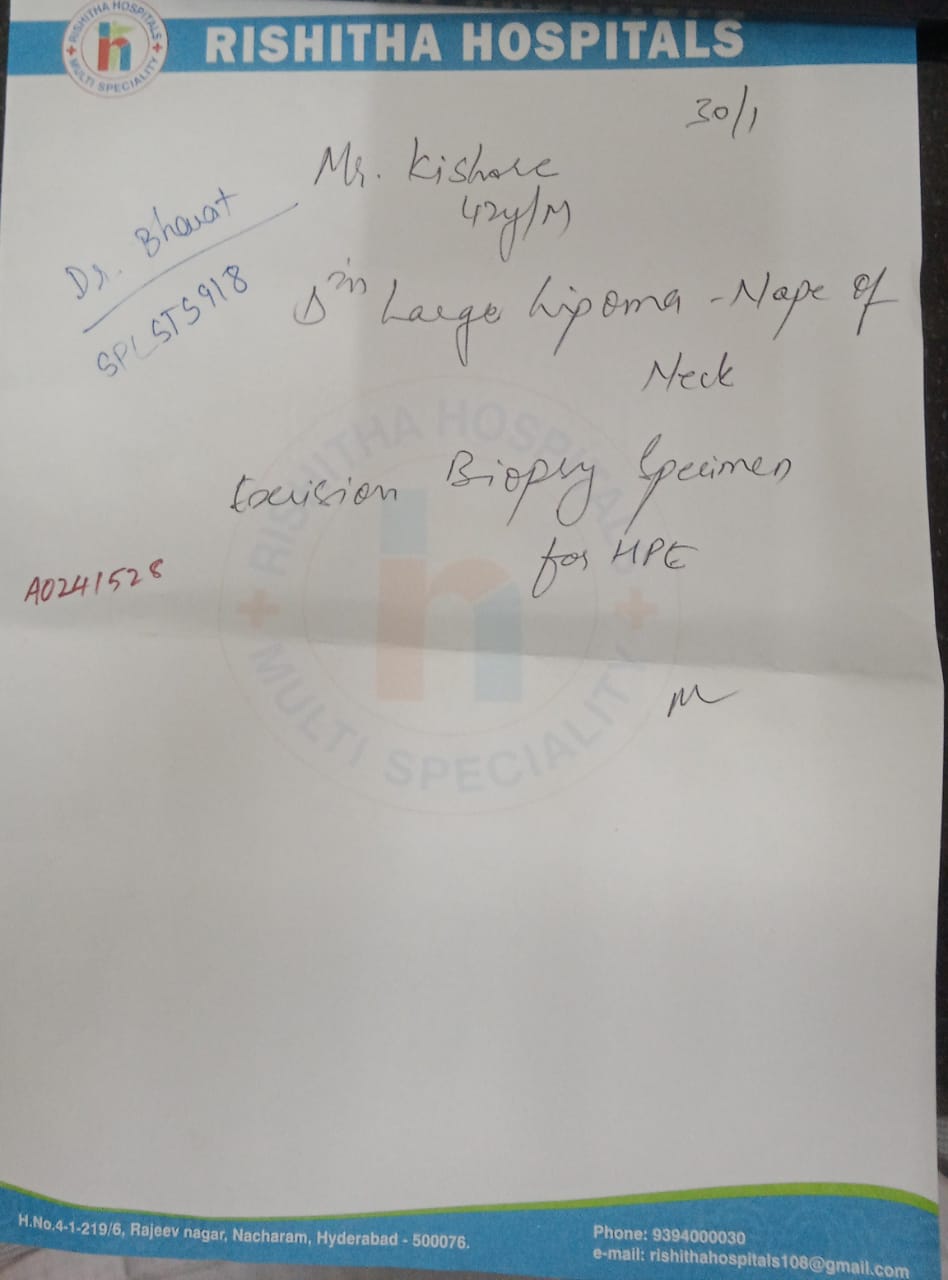 RISHITHA HOSPITALS
MULTI SPECIALITY
RISHITHA HOSPITALS
30/1
Mr. Kishore
42y/M
Dr. Bharat
SPLSTS918
Large Lipoma - Nape of
Neck
Excision Biopsy Specimen
for HPE
A0241528
RISHITHA HOSPITALS
MULTI SPECIALITY
H.No.4-1-219/6, Rajeev nagar, Nacharam, Hyderabad - 500076.
Phone: 9394000030
e-mail: rishithahospitals108@gmail.com